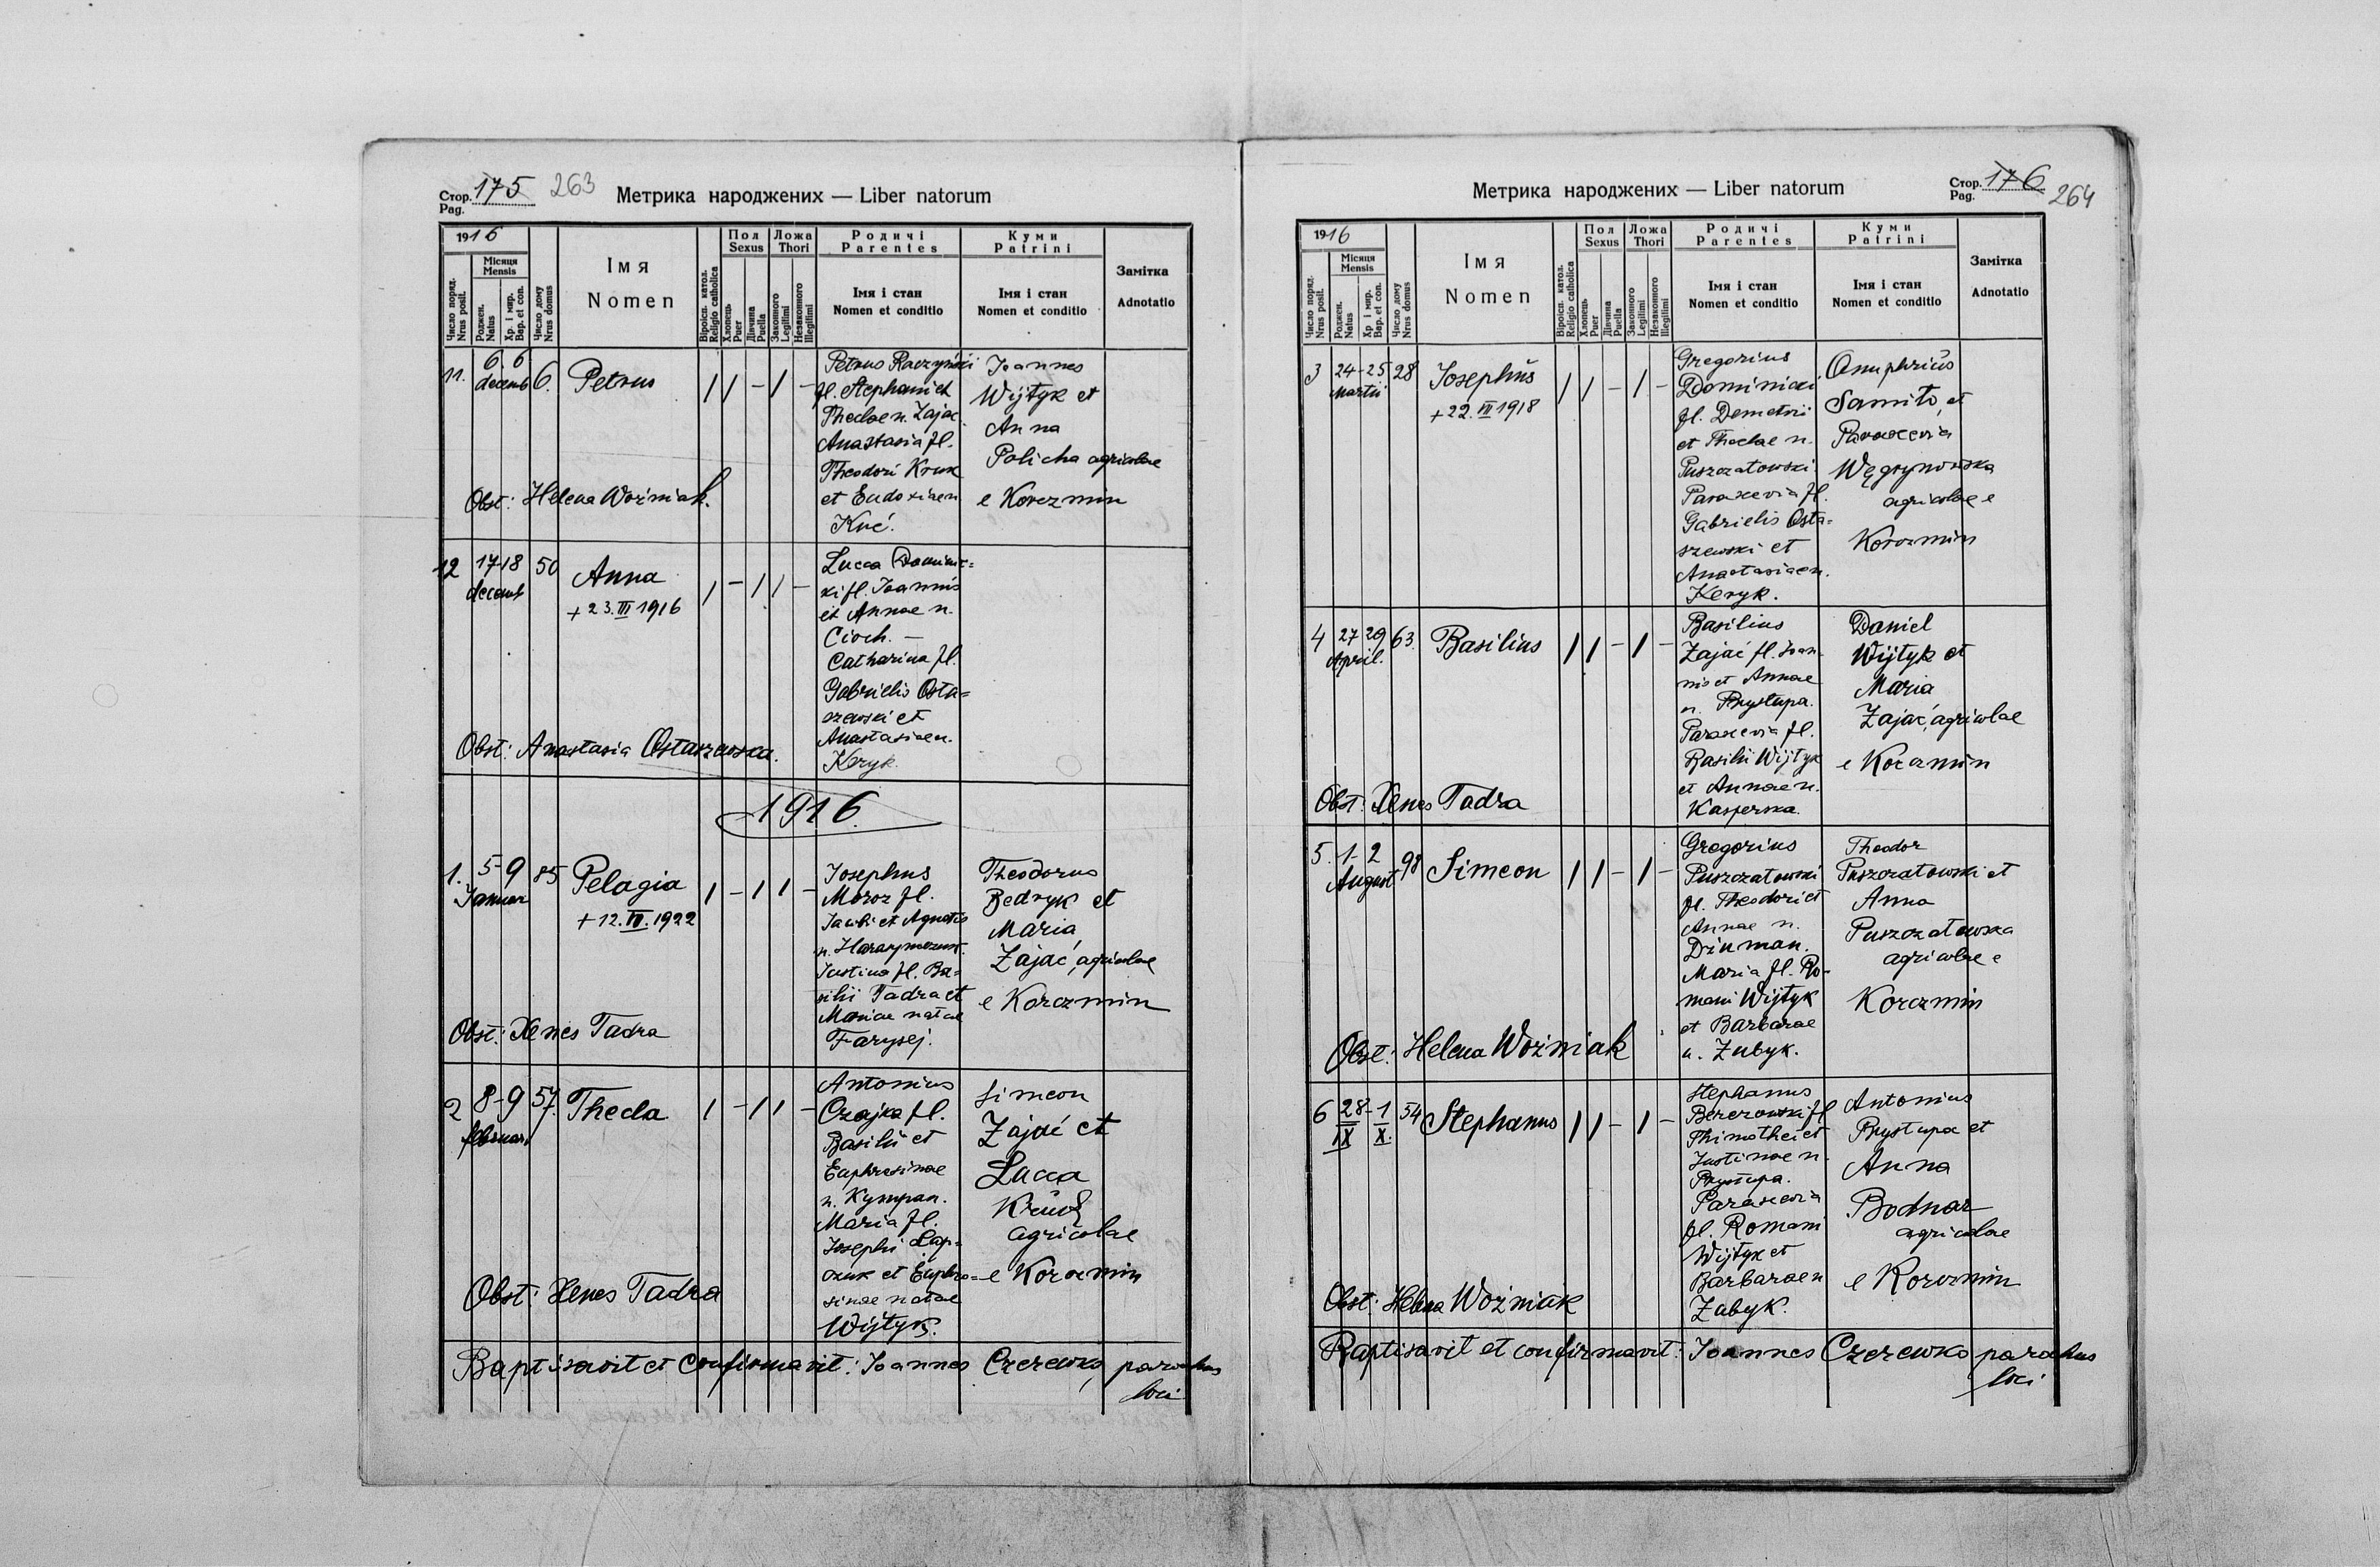 Стор. 175 263
Pag.
Метрика народжених — Liber natorum
1916
Місяця
Mensis
Число поряд.
Nrus posit.
Роджен.
Natus
Хр. і мир.
Bap. et con.
Число дому
Nrus domus
Імя
Nomen
Віроісп. катол.
Religio catholica
Пол
Sexus
Хлопець
Puer
Дівчина
Puella
Ложа
Thori
Законного
Legitimi
Незаконного
Illegitimi
Родичі
Parentes
Імя і стан
Nomen et conditio
Куми
Patrini
Імя і стан
Nomen et conditio
Замітка
Adnotatio
11. 6 6 decemb 6. Petrus
Petrus Raczyński
fl. Stephani et
Theclae n. Zając
Anastasia fl.
Theodori Kruk
et Eudoxiae n
Kuć.
Ioannes
Wijtyk et
Anna
Policha agricolae
e Korczmin
Obst: Helena Woźniak.
12 17-18 decemb 50 Anna
+ 23.III 1916
Lucca Domini=
ki fl. Ioannis
et Annae n.
Cioch. —
Catharina fl.
Gabrielis Osta=
szewski et
Anastasiae n.
Keryk.
Obst: Anastasia Ostaszewska.
1916.
1. 5-9 Januar 85 Pelagia
+ 12.IV.1922
Iosephus
Moroz fl.
Iacobi et Agnetis
Iustina fl. Ba=
silii Tadra et
Mariae natae
Farysej.
Theodorus
Bedryk et
Maria
Zając, agricolae
e Korczmin
Obst: Xenes Tadra
2 8-9 februar 57. Thecla
Antonius
Czajka fl.
Basilii et
Euphrosinae
n. Kympan.
Maria fl.
Iosephi Łap=
czuk et Euphro=
sinae natae
Wijtyk.
Simeon
Zając et
Lucca
agricolae
e Korczmin
Obst: Xenes Tadra
Baptisavit et confirmavit: Ioannes Czerewko, parochus
loci
Метрика народжених — Liber natorum
Стор. 176
Pag. 264
1916
Місяця
Mensis
Число поряд.
Nrus posit.
Роджен.
Natus
Хр. і мир.
Bap. et con.
Число дому
Nrus domus
Імя
Nomen
Віроісп. катол.
Religio catholica
Пол
Sexus
Хлопець
Puer
Дівчина
Puella
Ложа
Thori
Законного
Legitimi
Незаконного
Illegitimi
Родичі
Parentes
Імя і стан
Nomen et conditio
Куми
Patrini
Імя і стан
Nomen et conditio
Замітка
Adnotatio
3 24-25 Martii 28 Iosephus
+ 22.III 1918
Gregorius
Dominicki
fl. Demetrii
et Theclae n.
Puszczatowski
Parascevia fl.
Gabrielis Osta=
szewski et
Anastasiae n.
Keryk.
Onuphrius
Samito, et
Parascevia
Węgrynowska
agricolae e
Korczmin
4 27 29 April. 63. Basilius
Basilius
Zając fl. Ioan-
nis et Annae
n. Prystupa.
Parascevia fl.
Basilii Wijtyk
et Annae n.
Kasperska.
Daniel
Wijtyk et
Maria
Zając, agricolae
e Korczmin
Obst: Xenes Tadra
5. 1-2 August 98 Simeon
Gregorius
Puszczatowski
fl. Theodori et
Annae n.
Dziuman.
Maria fl. Ro-
mani Wijtyk
et Barbarae
n. Zubyk.
Theodor
Puszczatowski et
Anna
Puszczatowska
agricolae e
Korczmin
Obst: Helena Woźniak
6 28-1 IX X. 54 Stephanus
Stephanus
Berezowski fl
Thimothei et
Iustinae n.
Prystupa.
Parascevia
fl. Romani
Wijtyk et
Barbarae n
Zubyk.
Antonius
Prystupa et
Anna
Bodnar
agricolae
e Korczmin
Obst: Helena Woźniak
Baptisavit et confirmavit: Ioannes Czerewko parochus
loci